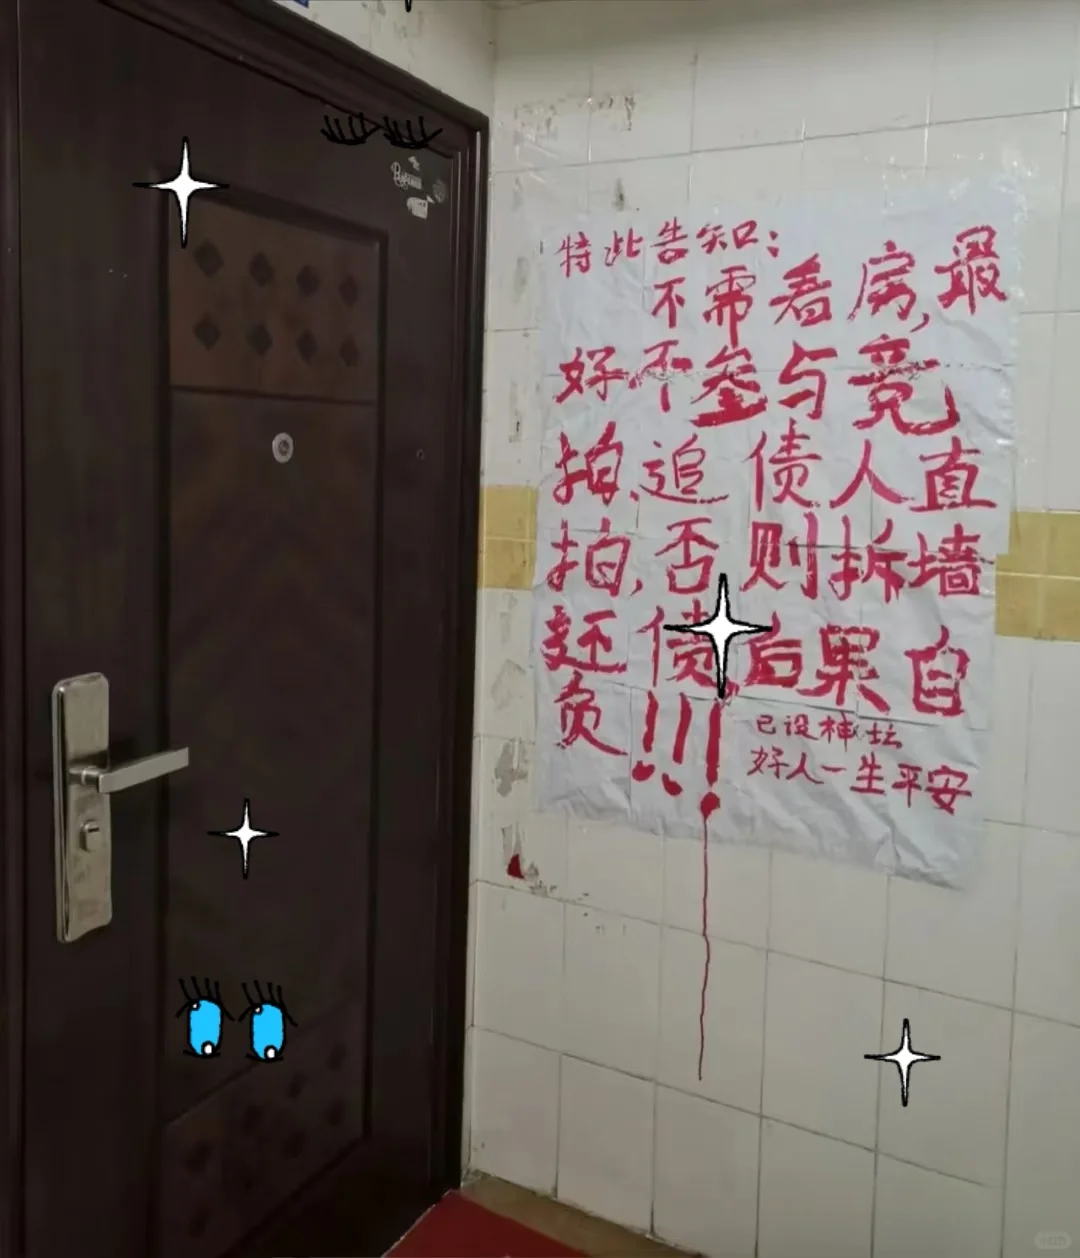 特此告知：
不需看房,最
好不叁与竞
拍,追债人直
拍,否则拆墙
还债,后果自
负!!!
已设神坛
好人一生平安